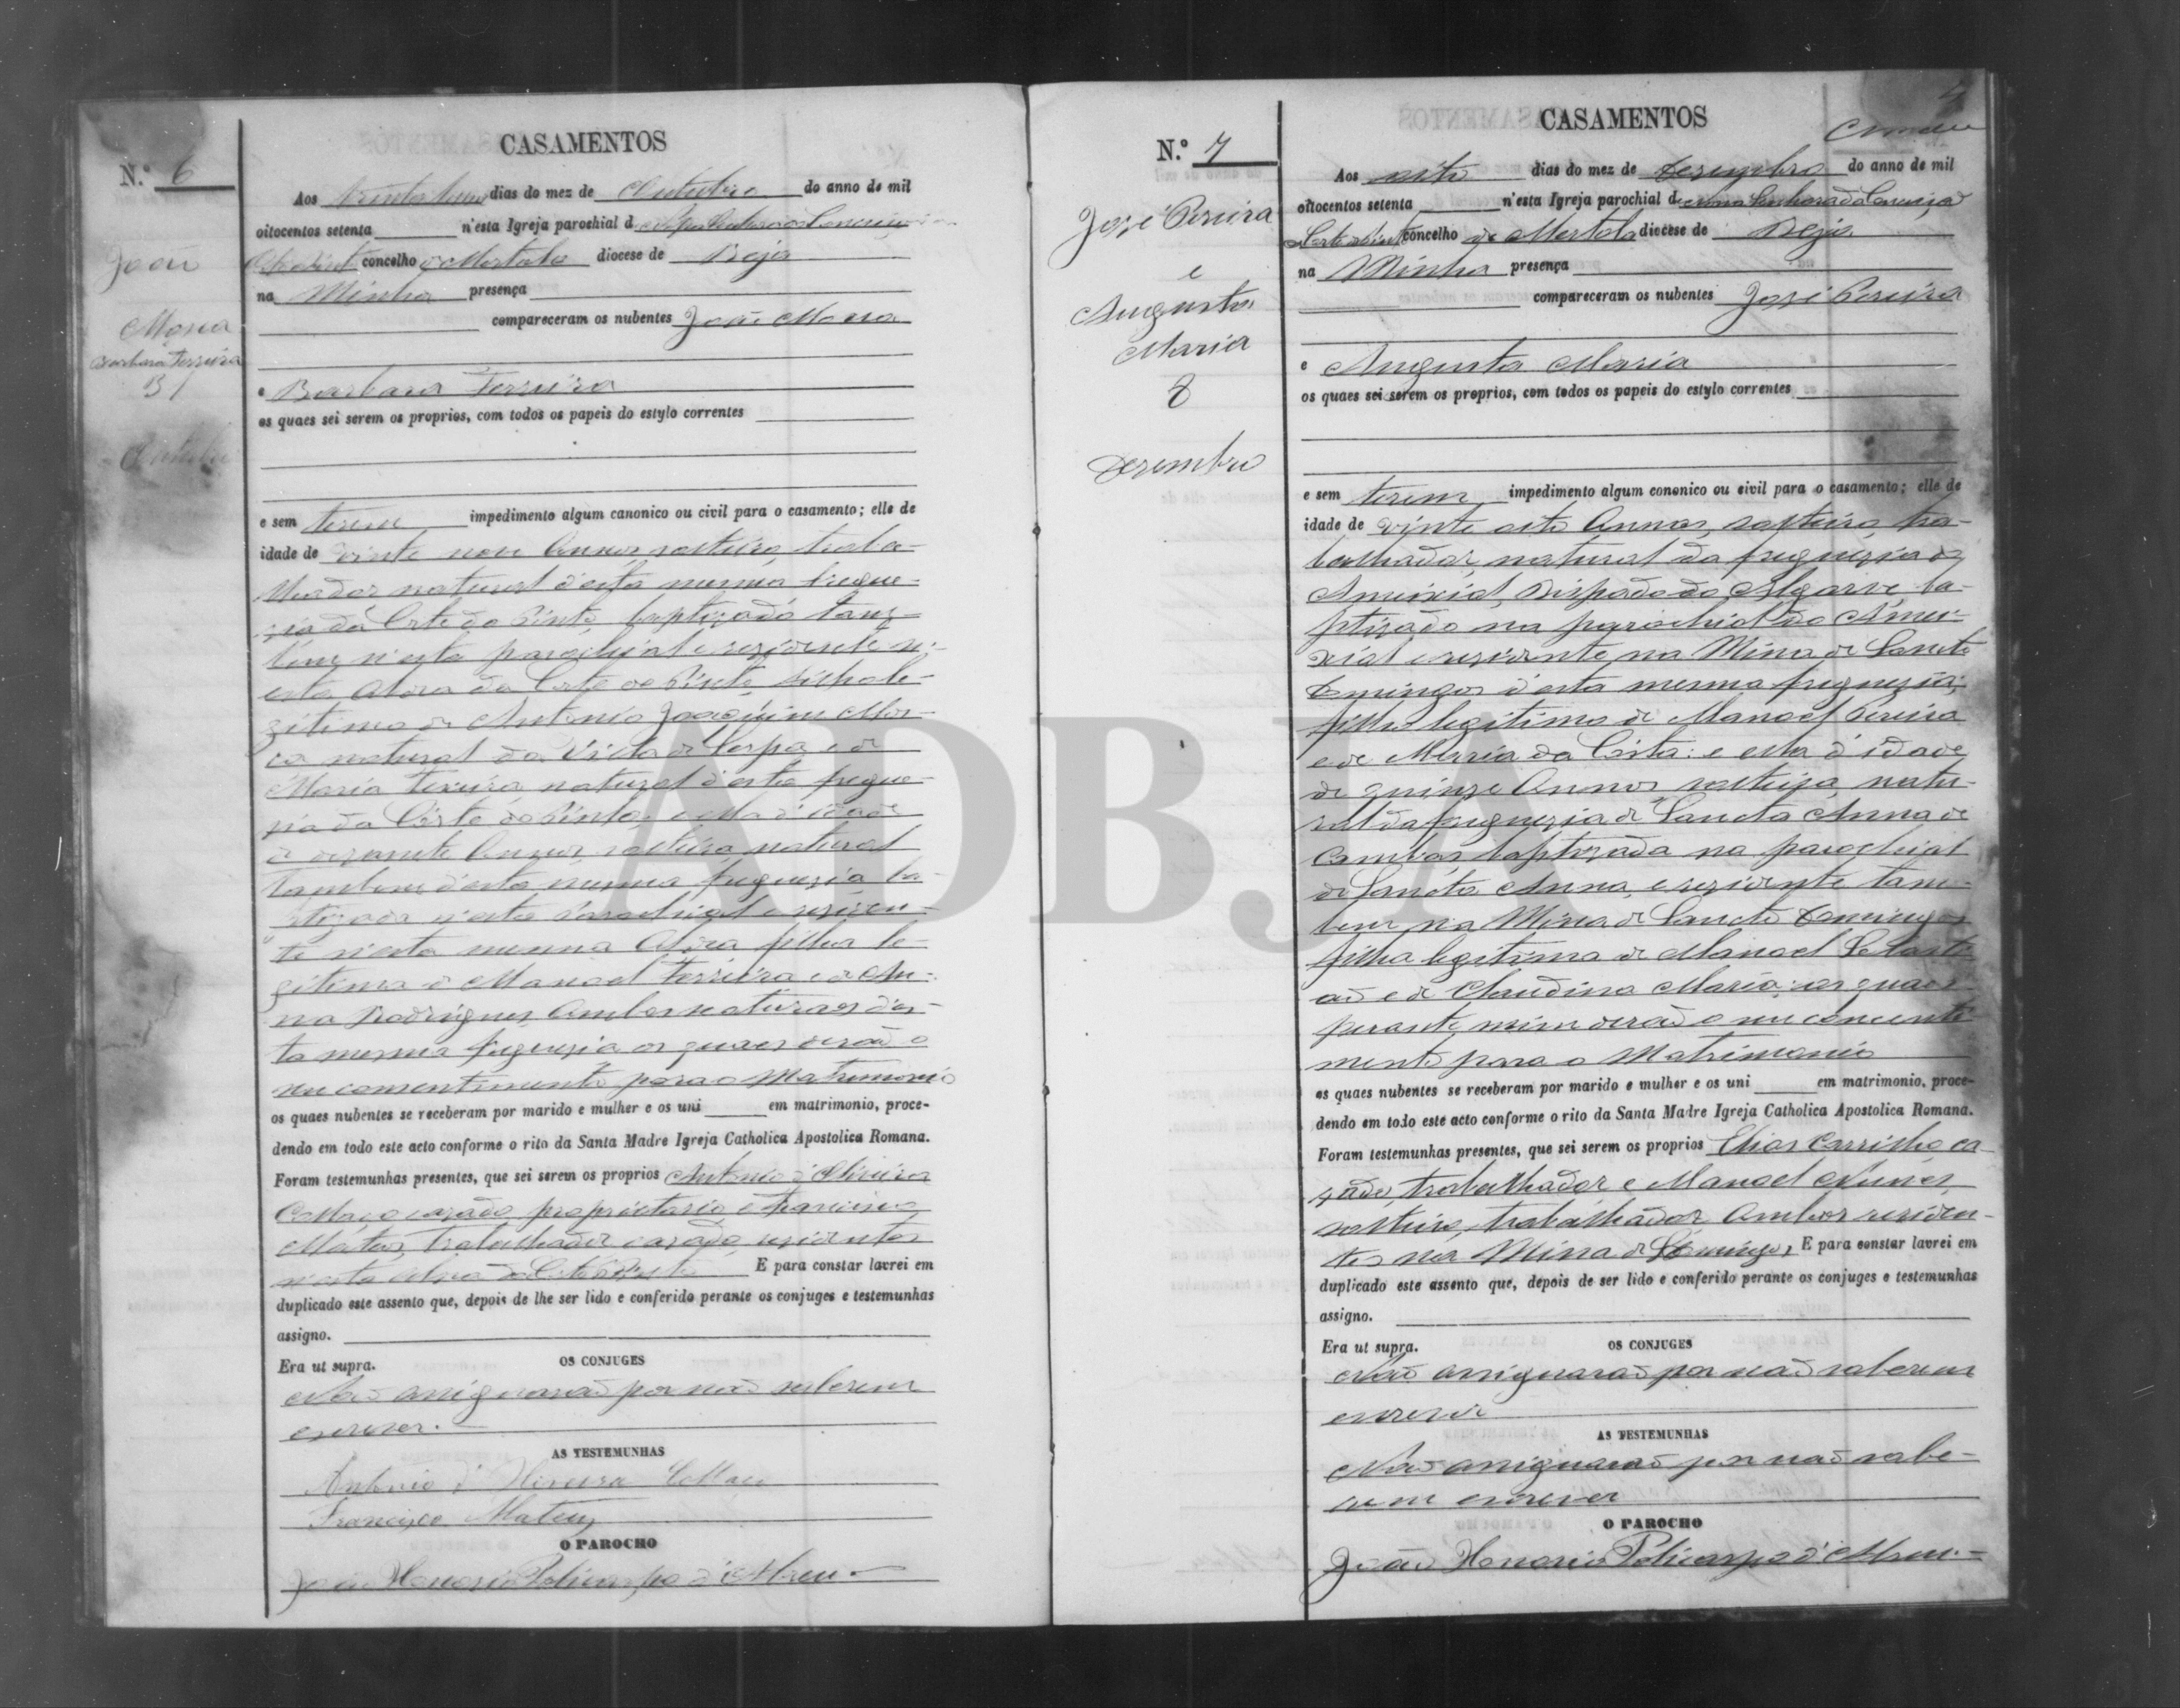 CASAMENTOS
N.º 6
João
Moura
Barbara Ferreira
31
Outubro
Aos trinta hum dias do mez de Outubro do anno de mil
oitocentos setenta n'esta Igreja parochial de Nossa Senhora da Conceição
Corte do Pinto concelho de Mertola diocese de Beja
na Minha presença
compareceram os nubentes João
e Barbara Ferreira
os quaes sei serem os proprios, com todos os papeis do estylo correntes
e sem terem impedimento algum canonico ou civil para o casamento; elle de
idade de vinte nove Annos, solteiro, traba-
lhador natural d'esta mesma fregue-
zia da Corte do Pinto, baptizado tam-
bem n'esta parochial e rezidente n'-
esta Aldea da Corte do Pinto filho le-
gitimo de Antonio Joaquim
natural da Villa de Serpa, e de
Maria natural d'esta fregue-
zia da Corte do Pinto: e ella d'idade
de dezasete Annos, solteira, natural
tambem d'esta mesma freguezia ba-
ptizada n'esta Parochial e reziden-
te n'esta mesma Aldea filha le-
gitima de Manoel Ferreira e de An-
na Rodrigues Ambos naturaes des-
ta mesma freguezia os quaes derão o
seu consentimento para o Matrimonio
os quaes nubentes se receberam por marido e mulher e os uni em matrimonio, proce-
dendo em todo este acto conforme o rito da Santa Madre Igreja Catholica Apostolica Romana.
Foram testemunhas presentes, que sei serem os proprios Antonio d'Oliveira
Collaço cazado, proprietario e Francisco
Mateus, trabalhador cazado, rezidentes
n'esta Aldea da Corte do Pinto E para constar lavrei em
duplicado este assento que, depois de lhe ser lido e conferido perante os conjuges e testemunhas
assigno.
Era ut supra. OS CONJUGES
Não assignarão por não saberem
escrever.
AS TESTEMUNHAS
Antonio d'Oliveira Collaço
Francisco Mateus
O PAROCHO
João Honorio Policarpo d'Abreu
4
CASAMENTOS
N.º 7
José Pereira
e
Augusta
Maria
8
Dezembro
Aos oito dias do mez de Dezembro do anno de mil
oitocentos setenta n'esta Igreja parochial de Nossa Senhora da Conceição
da Corte do Pinto concelho de Mertola diocese de Beja
na Minha presença
compareceram os nubentes José Pereira
e Augusta Maria
os quaes sei serem os proprios, com todos os papeis do estylo correntes
e sem terem impedimento algum cononico ou civil para o casamento; elle de
idade de vinte oito Annos, solteiro, tra-
balhador, natural da freguezia de
Ameixial, Bispado do Algarve, ba-
ptizado na parochial do Amei-
xial e rezidente na Mina de Sancto
Domingos d'esta mesma freguezia;
filho legitimo de Manoel Pereira
e de Maria da Costa: e ella d'idade
de quinze Annos solteira, natu-
ral da freguezia de Sancta Anna de
Cambas baptizada na parochial
de Sancta Anna, e rezidente tam-
bem na Mina de Sancto Domingos
filha legitima de Manoel Sebasti-
ão e de Claudina Maria: os quaes
perante mim derão o seu concenti-
mento para o Matrimonio
os quaes nubentes se receberam por marido e mulher e os uni em matrimonio, proce-
dendo em todo este acto conforme o rito da Santa Madre Igreja Catholica Apostolica Romana.
Foram testemunhas presentes, que sei serem os proprios Elias Carrilho, ca-
zado, trabalhador e Manoel Nunes
solteiro, trabalhador Ambos reziden-
tes na Mina de S. Domingos, E para constar lavrei em
duplicado este assento que, depois de ser lido e conferido perante os conjuges e testemunhas
assigno.
Era ut supra. OS CONJUGES
Não assignarão por não saberem
escrever
AS TESTEMUNHAS
Não assignarão por não sabe-
rem escrever
O PAROCHO
João Honorio Policarpo d'Abreu
ADBJA